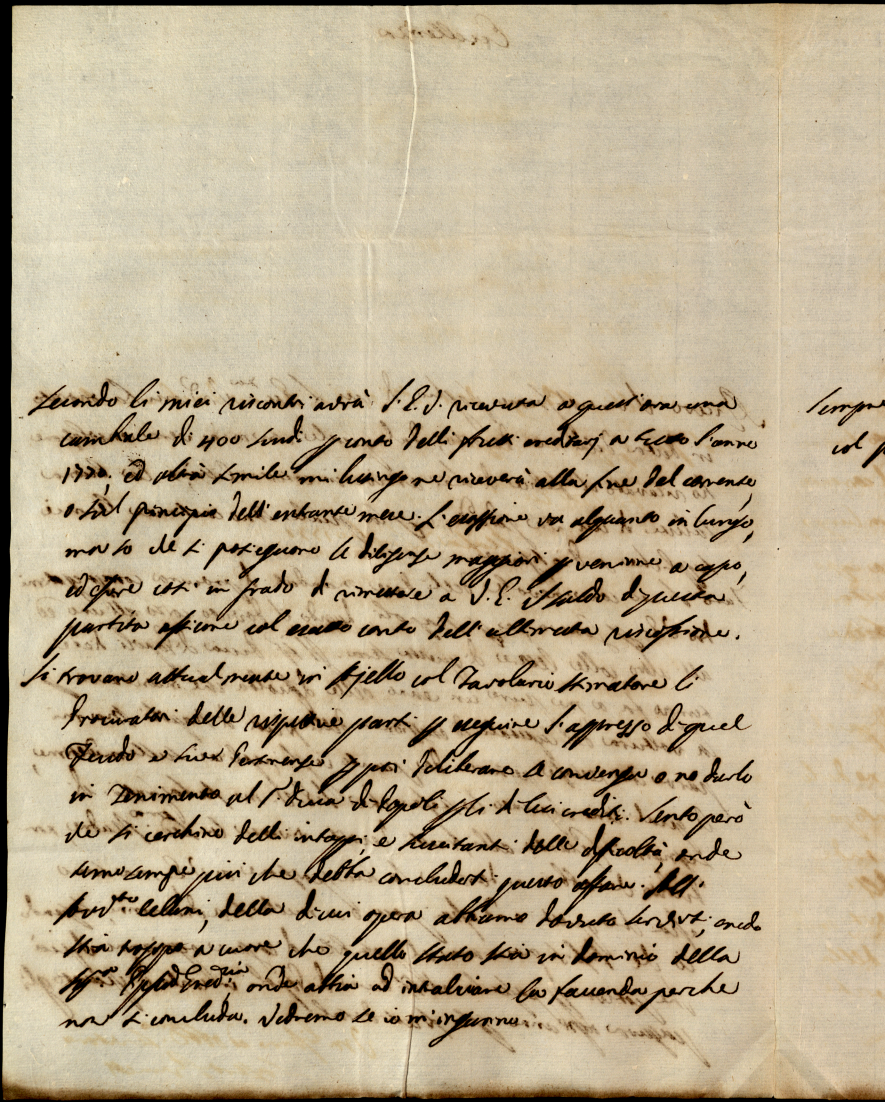 Secondo li miei riscontri avrà S. E. S. ricevuta a quest'ora una
cambiale di 400 scudi p conto delli frutti ereditarj a tutto l'anno
ed altra simile mi lusingo ne riceverà alla fine del corrente,
o sul principio dell'entrante mese. L'esazzione va alquanto in lungo,
ma so che si proseguono le diligenze maggiori p venirne a capo,
ed essere così in grado di rimettere a S. E. il saldo di questa
partita assieme col esatto conto dell'ultimata riscossione.
Si trovano attualmente in col Tavolario stimatore li
Procuratori delle rispettive parti p eseguire l'apprezzo di quel
Feudo e sue Pertinenze p poi deliberare se convenga o no darlo
in Tenimento al S.r Duca di Popoli p li di lui crediti. Sento però
che si cerchino delli intoppi, e suscitanti delle difficoltà, onde
temo sempre più che debba concludersi questo affare.
Cellini, della di cui opera abbiamo dovuto servirsi, credo
stia troppo a cuore che quello stato stia in dominio della
onde abbia ad intralciare la faccenda perche
non si concluda. Vedremo se io m'inganno.
Sempre
col